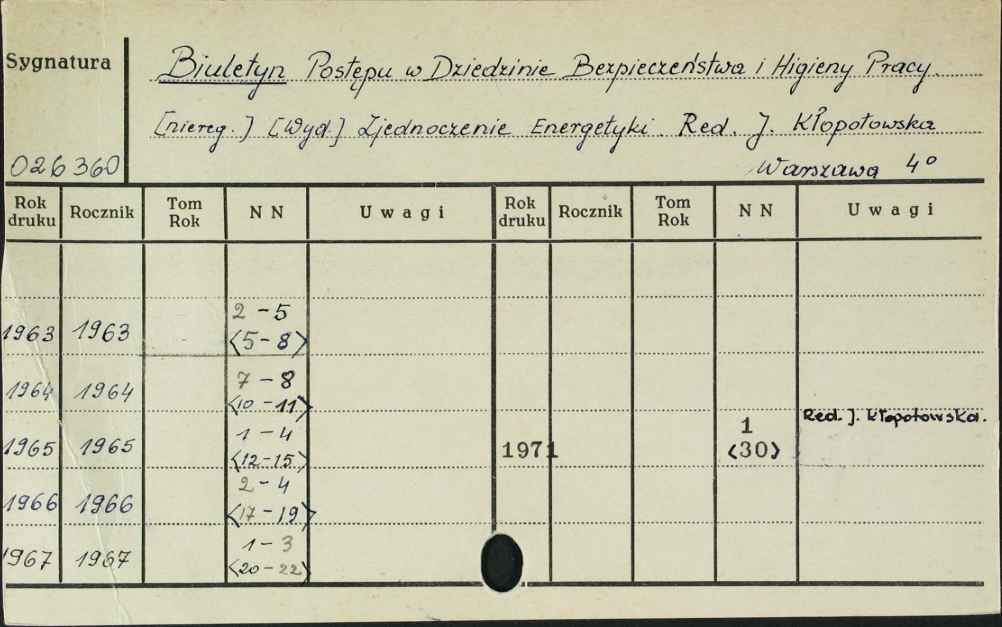 Sygnatura
Biuletyn Postępu w Dziedzinie Bezpieczeństwa i Higieny Pracy.
[niereg.] [Wyd.] Zjednoczenie Energetyki. Red. J. Kłopotowska
026360
Warszawa 4°
Rok druku Rocznik Tom Rok NN Uwagi Rok druku Rocznik Tom Rok NN Uwagi
1963 1963 2-5
<5-8>
1964 1964 7-8
<10-11>
1965 1965 1-4
<12-15>
1971 1
<30>
Red. J. Kłopotowska.
1966 1966 2-4
<17-19>
1967 1967 1-3
<20-22>